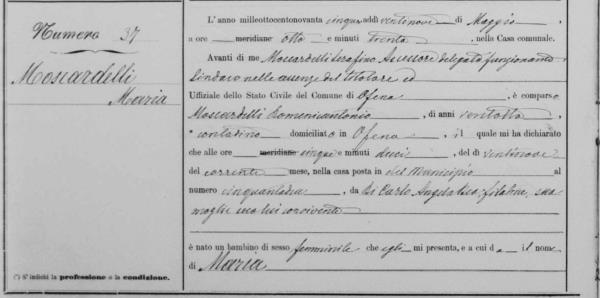 Numero 37
Moscardelli
Maria
(*) S'indichi la professione o la condizione.
L'anno milleottocentonovantacinque addì ventinove di Maggio,
a ore meridiane otto e minuti trenta, nella Casa comunale.
Avanti di me Moscardelli Serafino Assessore delegato funzionante
Sindaco nelle assenze del titolare ed
Uffiziale dello Stato Civile del Comune di Ofena, è comparso
Moscardelli Domenicantonio, di anni ventotto
contadino domiciliato in Ofena, il quale mi ha dichiarato
che alle ore meridiane cinque e minuti dieci, del dì ventinove
del corrente mese, nella casa posta in del Municipio al
numero cinquantadue, da Di Carlo Angelica, filatrice, sua
moglie seco lui convivente
è nato un bambino di sesso femminile che egli mi presenta, e a cui da il nome
di Maria